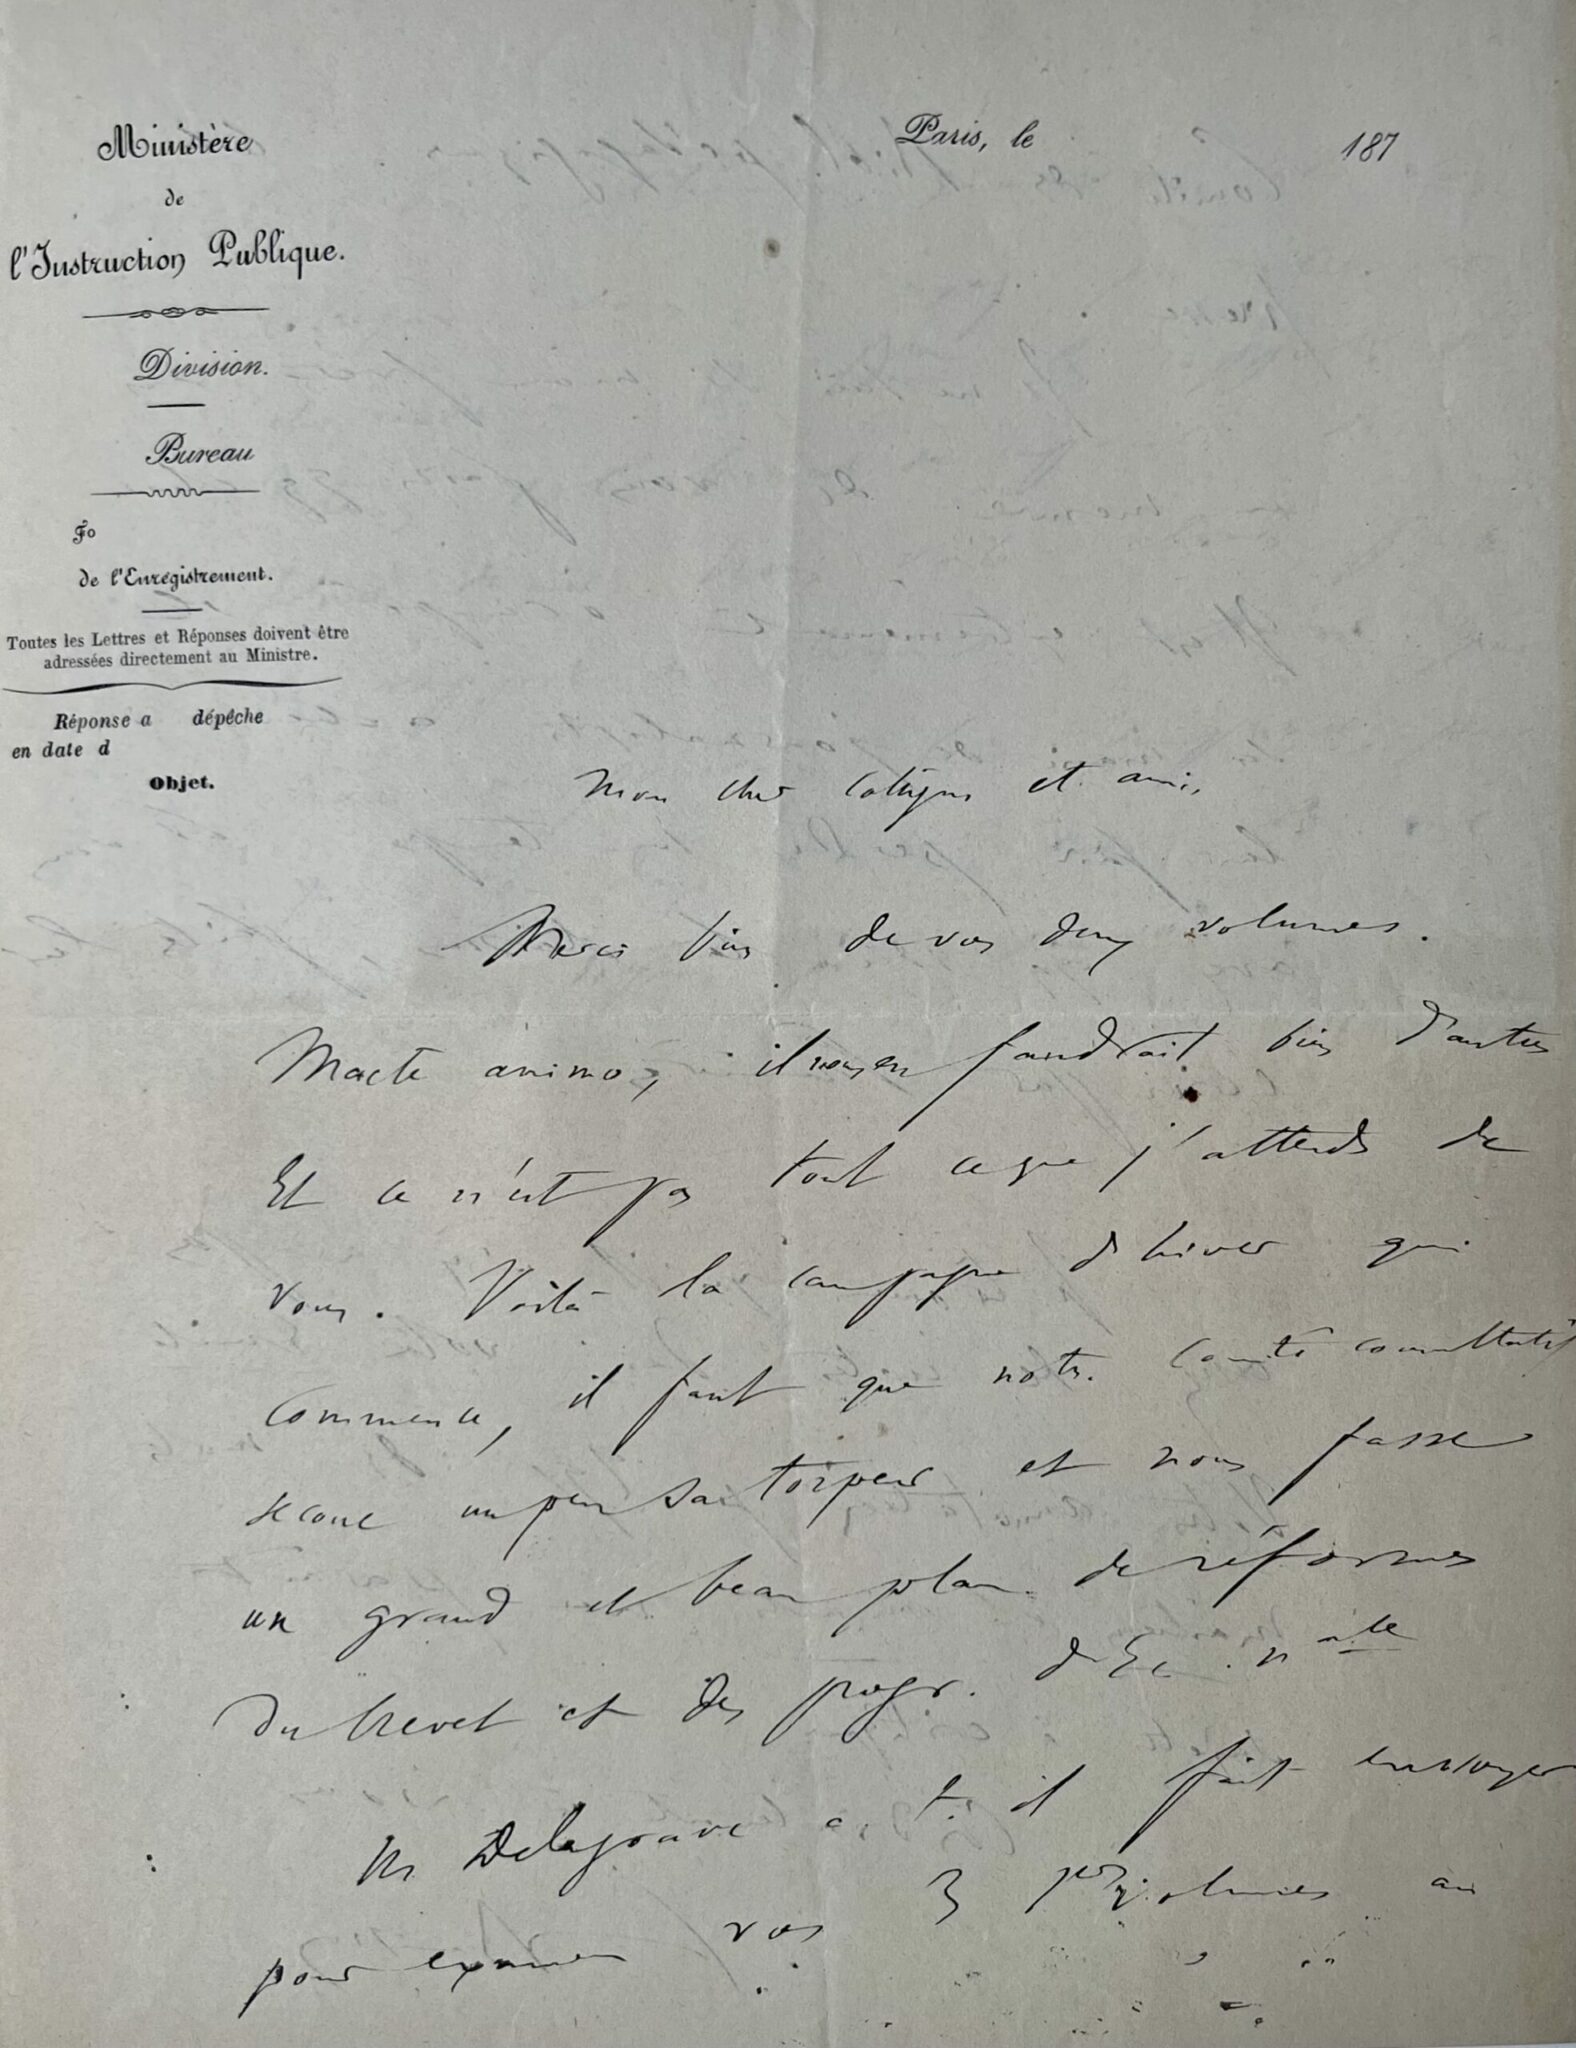 Ministère
de
l'Instruction Publique.
Division.
Bureau
Fo
de l'Enregistrement.
Toutes les Lettres et Réponses doivent être
adressées directement au Ministre.
Réponse a dépêche
en date d
Objet.
Paris, le 187
Mon cher collègue et ami,
Merci bien de vos deux volumes.
Macte animo, il nous en faudrait bien d'autres
Et ce n'est pas tout ce que j'attends de
vous. Voilà la campagne d'hiver qui
commence, il faut que notre Comité consultatif
secoue un peu sa torpeur et nous fasse
un grand et beau plan de réformes
du brevet et des progr. d'Ec. nale
M Delagrave a-t-il fait envoyer
pour examen vos 3 1ers volumes au